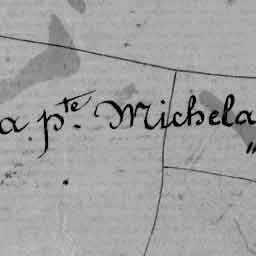 a p.te Michela
"